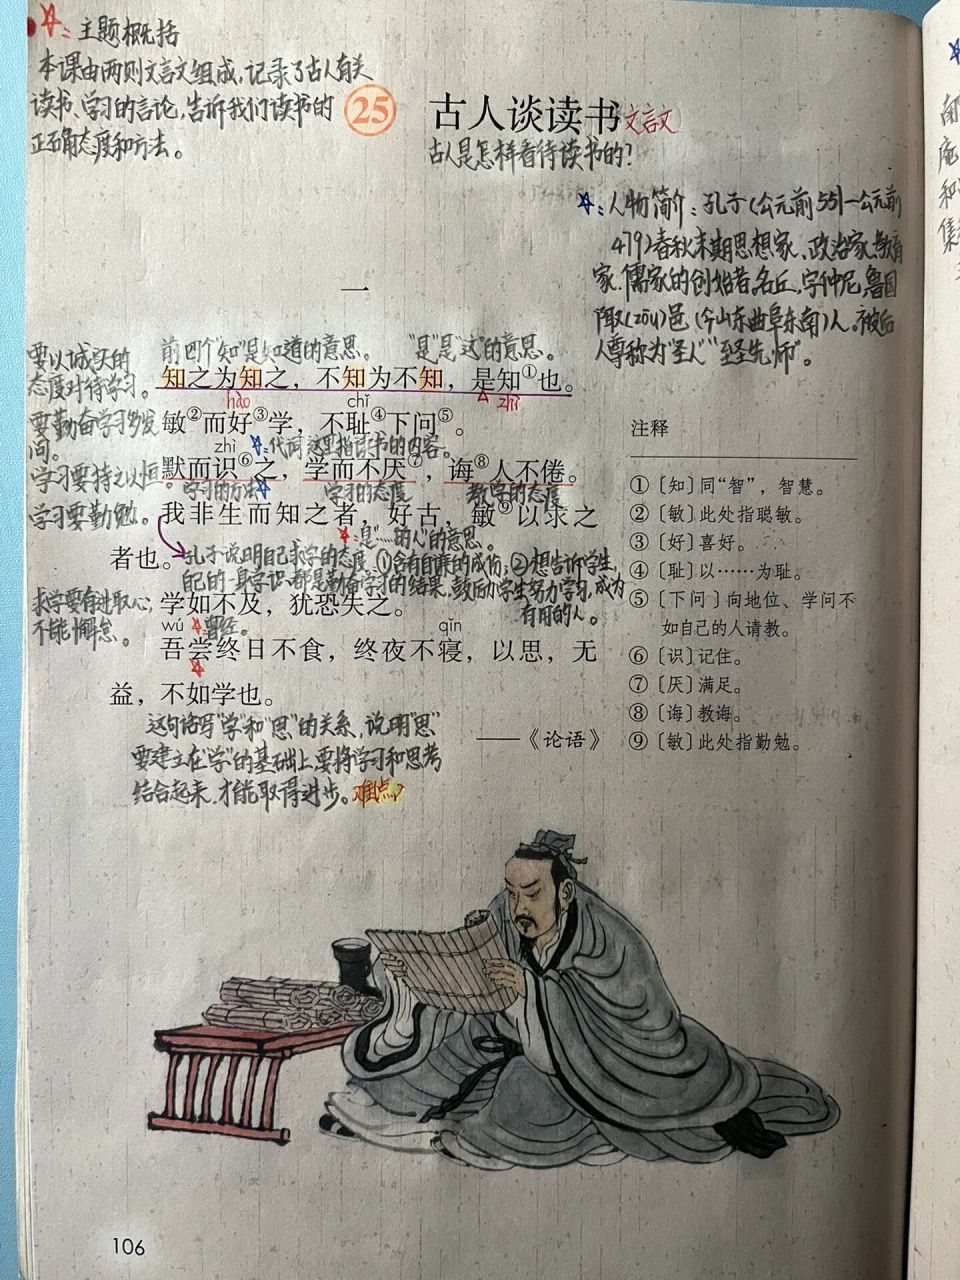 ☆：主题概括
本课由两则文言文组成，记录了古人有关
读书、学习的言论，告诉我们读书的
正确态度和方法。
25 古人谈读书 文言文
古人是怎样看待读书的？
☆：人物简介：孔子（公元前551—公元前
479）春秋末期思想家、政治家、教育
家、儒家的创始者，名丘，字仲尼，鲁国
陬（zōu）邑（今山东曲阜东南）人。被后
人尊称为“圣人”“至圣先师”。
一
前四个“知”是知道的意思。 “是”是“这”的意思。
要以诚实的
态度对待学习。
知之为知之，不知为不知，是知①也。
hào chǐ zhì
敏②而好③学，不耻④下问⑤。
要勤奋学习多发
问。
zhì ☆：代词 这里指读书的内容。
默而识⑥之，学而不厌⑦，诲⑧人不倦。
学习要持之以恒
学习的方法 学习的态度 教学的态度
学习要勤勉。
我非生而知之者，好古，敏⑨以求之
☆：是“……的人”的意思。
者也。
孔子说明自己求学的态度 ①含有自谦的成份；②想告诉学生，
自己的一身学识都是勤奋学习的结果，鼓励学生努力学习，成为
有用的人。
求学要有进取心，
不能懈怠。
学如不及，犹恐失之。
wú ☆：曾经。 qǐn
吾尝终日不食，终夜不寝，以思，无
益，不如学也。
这句话写“学”和“思”的关系，说明“思”
要建立在“学”的基础上要将学习和思考
结合起来，才能取得进步。难点
——《论语》
注释
①〔知〕同“智”，智慧。
②〔敏〕此处指聪敏。
③〔好〕喜好。
④〔耻〕以……为耻。
⑤〔下问〕向地位、学问不
如自己的人请教。
⑥〔识〕记住。
⑦〔厌〕满足。
⑧〔诲〕教诲。
⑨〔敏〕此处指勤勉。
106